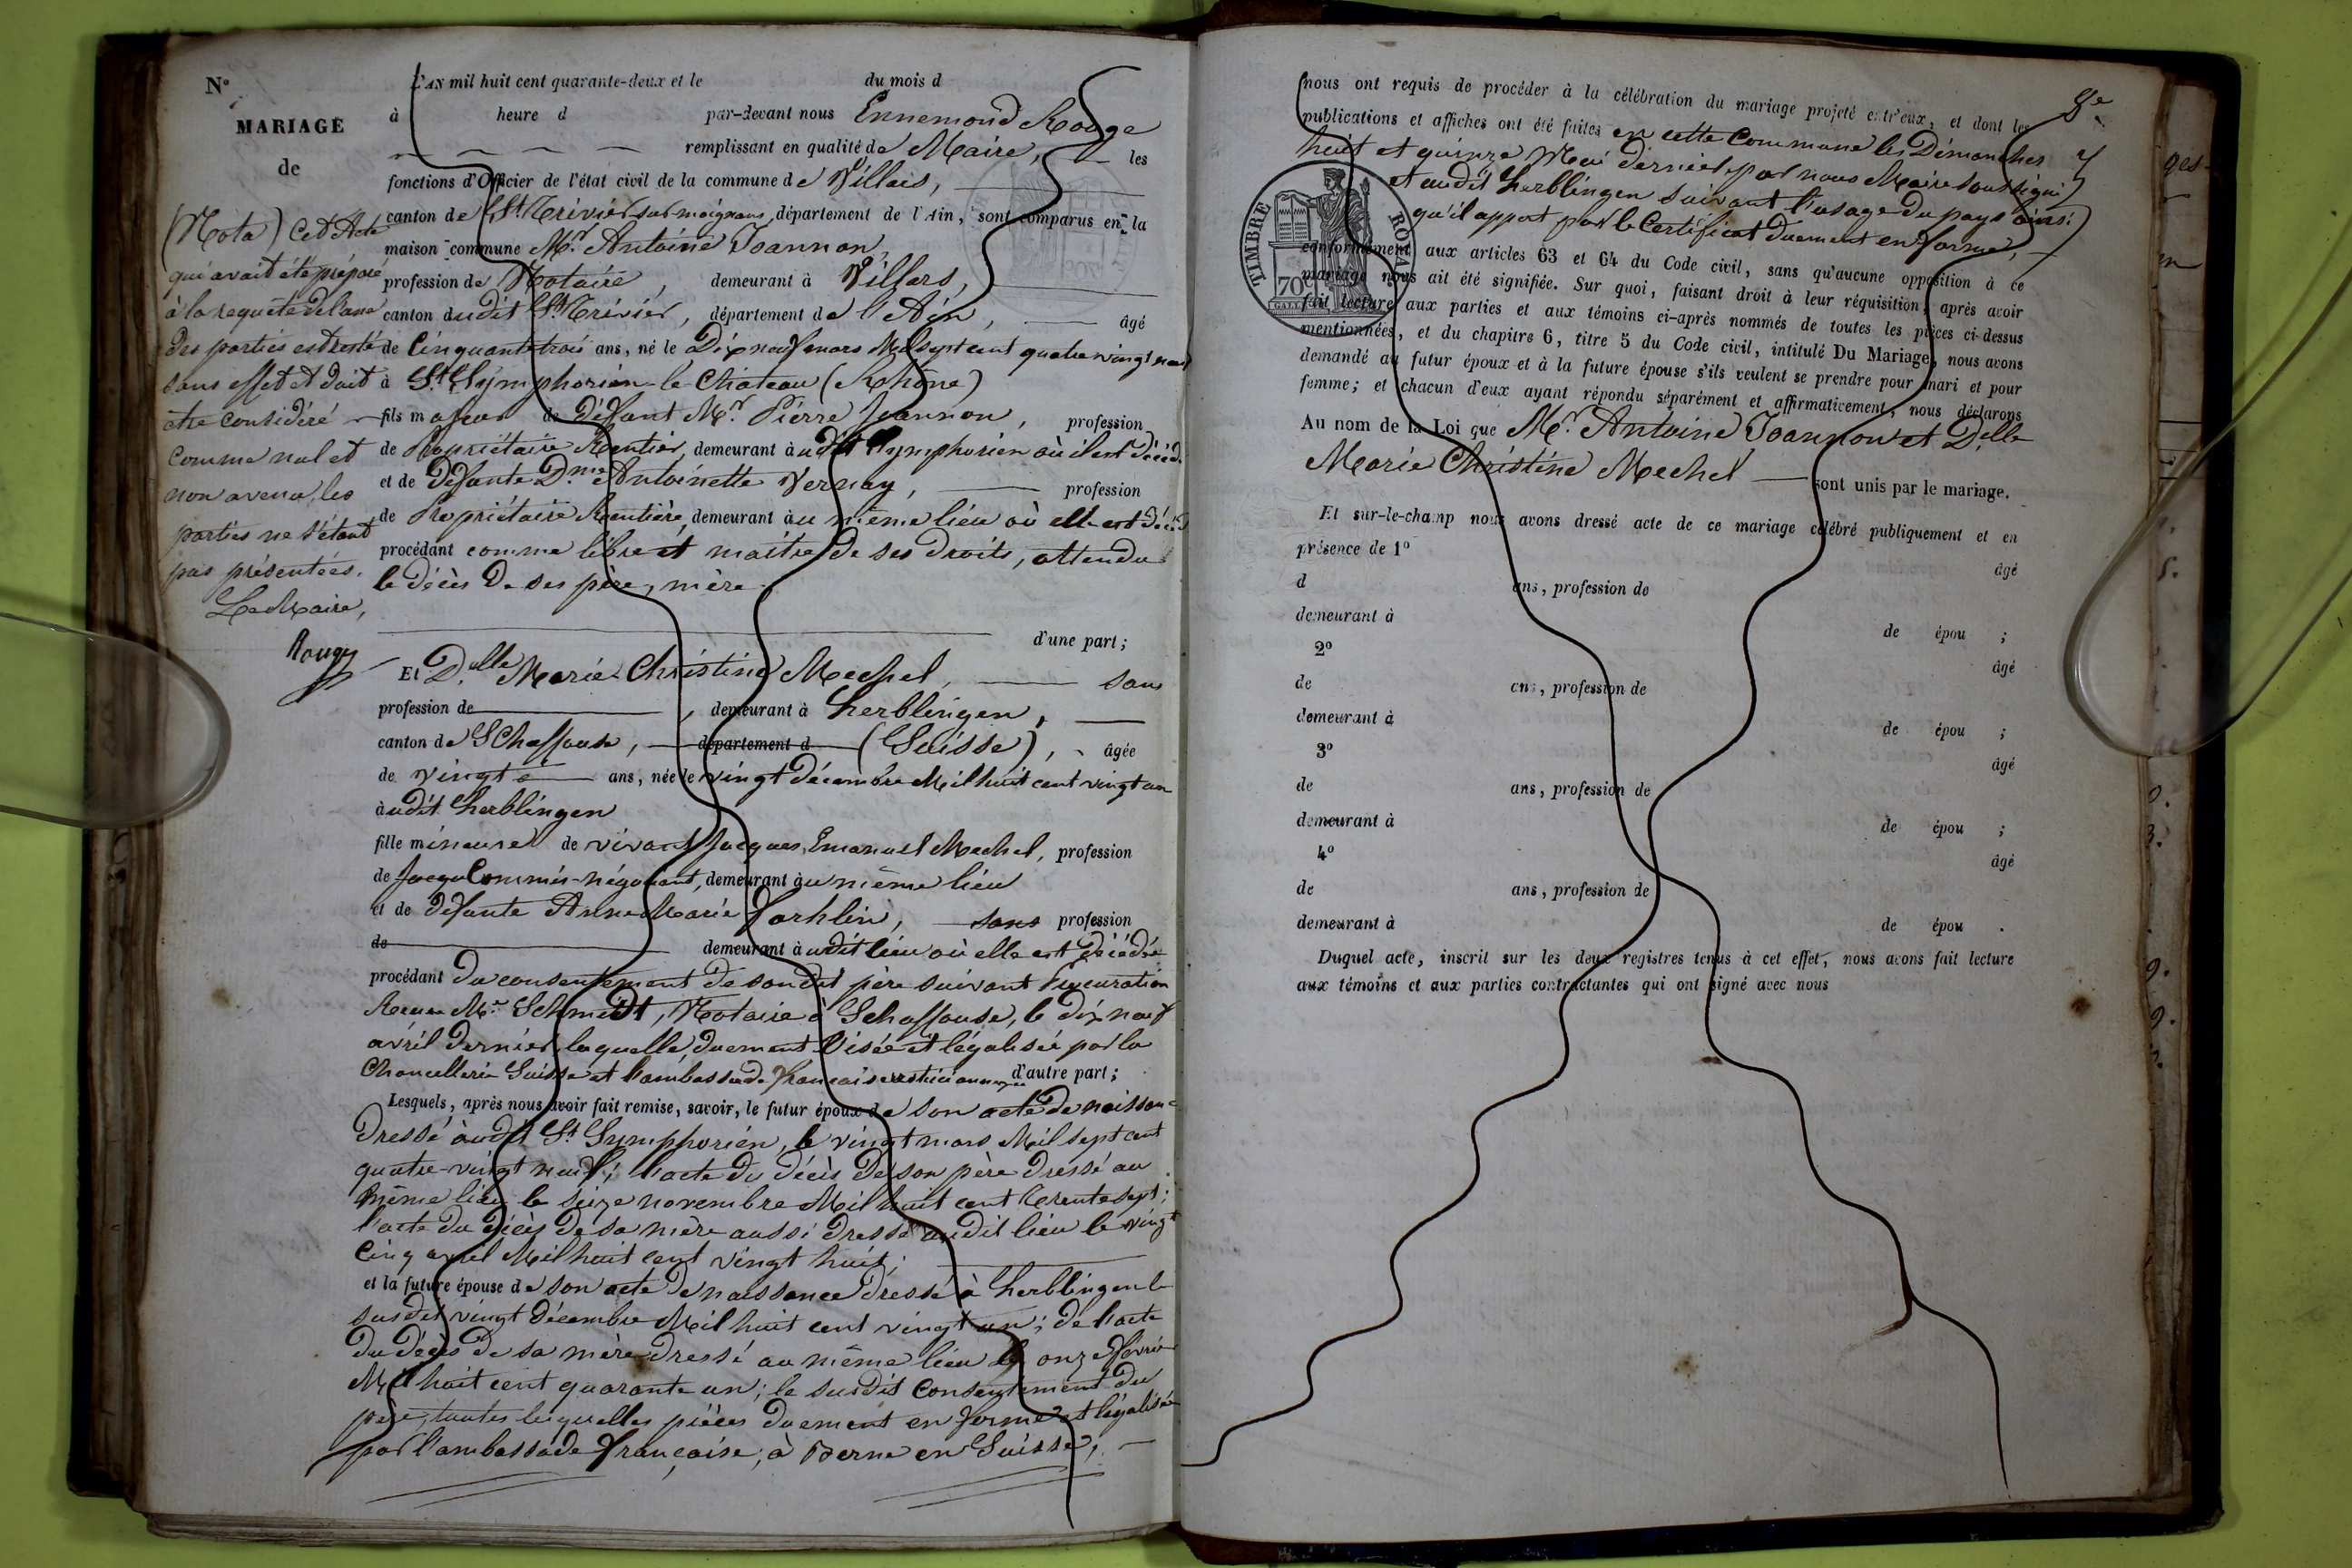 N°
MARIAGE
de
(Nota) Cet Acte
qui avait été préparé
à la requête de l'une
des parties est resté
sans effet et doit
être considéré
comme nul et
non avenu, les
parties ne s'étant
pas présentées.
Le Maire,
Rougy
L'AN mil huit cent quarante-deux et le du mois d
à heure d par-devant nous Ennemond Rouge
remplissant en qualité de Maire, les
fonctions d'Officier de l'état civil de la commune de Villars,
canton de St. Trivier sur moignans, département de l'Ain, sont comparus en la
maison commune Mr. Antoine Joannon,
profession de Notaire, demeurant à Villars,
canton dudit St. Trivier, département de l'Ain, âgé
de Cinquante trois ans, né le Dix neuf mars Mil sept cent quatre vingt neuf
à St. Symphorien-le-Chateau (Rhône)
fils majeur de défunt Mr. Pierre Joannon, profession
de Propriétaire Rentier, demeurant audit St Symphorien où il est décédé
et de défunte Dme Antoinette Vernay, profession
de Propriétaire Rentière, demeurant au même lieu où elle est décédée
procédant comme libre et maître de ses droits, attendu
le décès de ses père, mère
d'une part;
Et Delle Marie Christine Mechel, sans
profession de , demeurant à herblingen,
canton de SChaffouse, département d (Suisse), âgée
de vingt ans, née le vingt Décembre Mil huit cent vingt un
audit herblingen
fille mineure de vivant Jacques Emanuel Mechel, profession
de Commis-négociant, demeurant au même lieu
et de défunte Anne Marie , sans profession
de demeurant audit lieu où elle est décédée
procédant du consentement de son dit père suivant Procuration
Reçue Me. Schmidt, Notaire à Schaffouse, le dix neuf
avril Dernier, laquelle, duement Visée et légalisée par la
Chancellerie Suisse et l'ambassade française d'autre part;
Lesquels, après nous avoir fait remise, savoir, le futur époux de son acte de naissance
Dressé audit St. Symphorien, le vingt mars Mil sept cent
quatre-vingt neuf; l'acte du décès de son père dressé au
même lieu le seize novembre Mil huit cent trente sept;
l'acte du décès de sa mère aussi dressé audit lieu le vingt
Cinq avril Mil huit cent vingt huit;
et la future épouse de son acte de naissance dressé à herblingen le
susdit vingt décembre Mil huit cent vingt un; de l'acte
du décès de sa mère dressé au même lieu le onze février
Mil huit cent quarante un; le susdit Consentement du
père, toutes lesquelles pièces duement en forme et légalisées
par l'ambassade française, à Berne en Suisse,
nous ont requis de procéder à la célébration du mariage projeté entr'eux, et dont les
publications et affiches ont été faites en cette Commune les Dimanches
huit et quinze Mai dernier par nous Maire soussigné
et audit herblingen suivant l'usage du pays ainsi
qu'il appert par le Certificat Duement en forme,
conformément aux articles 63 et 64 du Code civil, sans qu'aucune opposition à ce
mariage nous ait été signifiée. Sur quoi, faisant droit à leur réquisition, après avoir
fait lecture aux parties et aux témoins ci-après nommés de toutes les pièces ci-dessus
mentionnées, et du chapitre 6, titre 5 du Code civil, intitulé Du Mariage, nous avons
demandé au futur époux et à la future épouse s'ils veulent se prendre pour mari et pour
femme; et chacun d'eux ayant répondu séparément et affirmativement, nous déclarons
TIMBRE ROYAL
70
Au nom de la Loi que Mr. Antoine Joannon et Delle
Marie Christine Mechel sont unis par le mariage.
Et sur-le-champ nous avons dressé acte de ce mariage célébré publiquement et en
présence de 1° âgé
d ans, profession de
demeurant à de épou ;
2° âgé
de ans, profession de
demeurant à de épou ;
3° âgé
de ans, profession de
demeurant à de épou ;
4° âgé
de ans, profession de
demeurant à de épou .
Duquel acte, inscrit sur les deux registres tenus à cet effet, nous avons fait lecture
aux témoins et aux parties contractantes qui ont signé avec nous